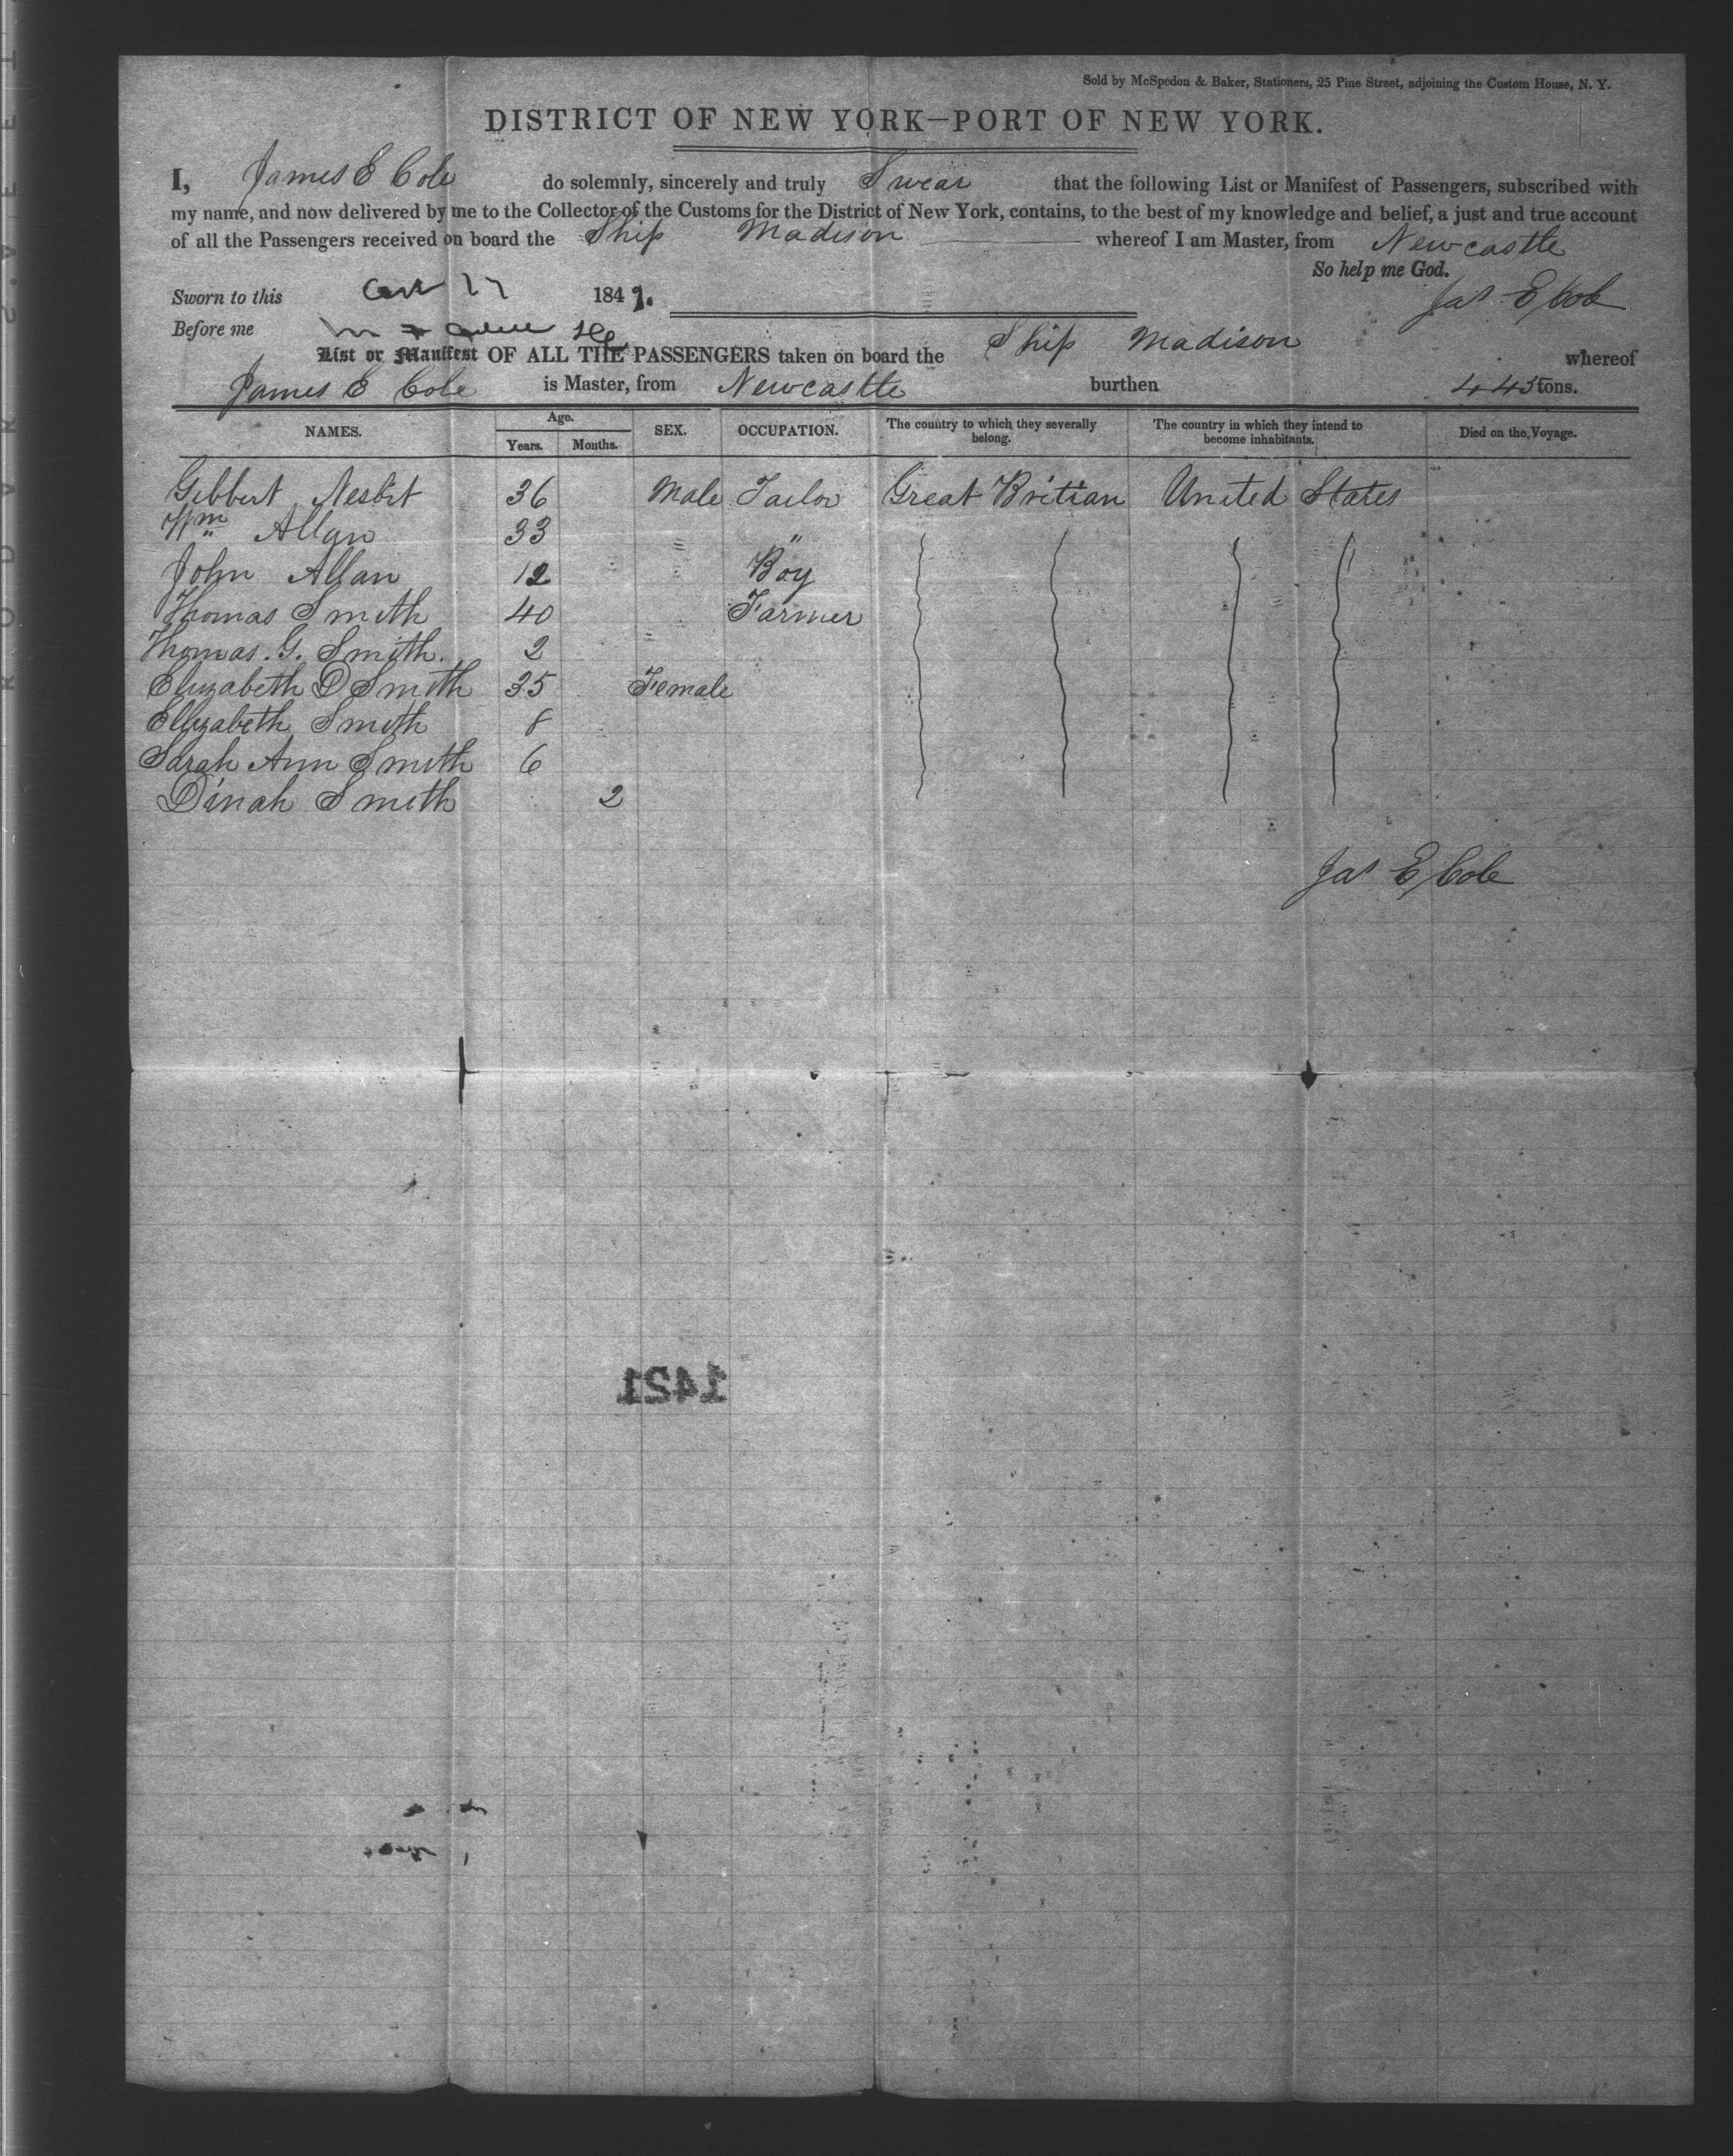 Sold by McSpedon & Baker, Stationers, 25 Pine Street, adjoining the Custom House, N. Y.
DISTRICT OF NEW YORK—PORT OF NEW YORK.
I, James E Cole do solemnly, sincerely and truly Swear that the following List or Manifest of Passengers, subscribed with
my name, and now delivered by me to the Collector of the Customs for the District of New York, contains, to the best of my knowledge and belief, a just and true account
of all the Passengers received on board the Ship Madison whereof I am Master, from Newcastle
So help me God.
Sworn to this 17 184 Jas E Cole
Before me
List or Manifest OF ALL THE PASSENGERS taken on board the Ship Madison whereof
James E Cole is Master, from Newcastle burthen 445 tons.
NAMES. Age. Years. Months. SEX. OCCUPATION. The country to which they severally belong. The country in which they intend to become inhabitants. Died on the Voyage.
Gibbert Nesbit 36 Male Tailor Great Britian United States
Wm Allan 33 "
John Allan 12 Boy
Thomas Smith 40 Farmer
Thomas. G. Smith. 2
Elizabeth D Smith 35 Female
Ellizabeth Smith 8
Sarah Ann Smith 6
Dinah Smith 2
Jas E Cole
1421